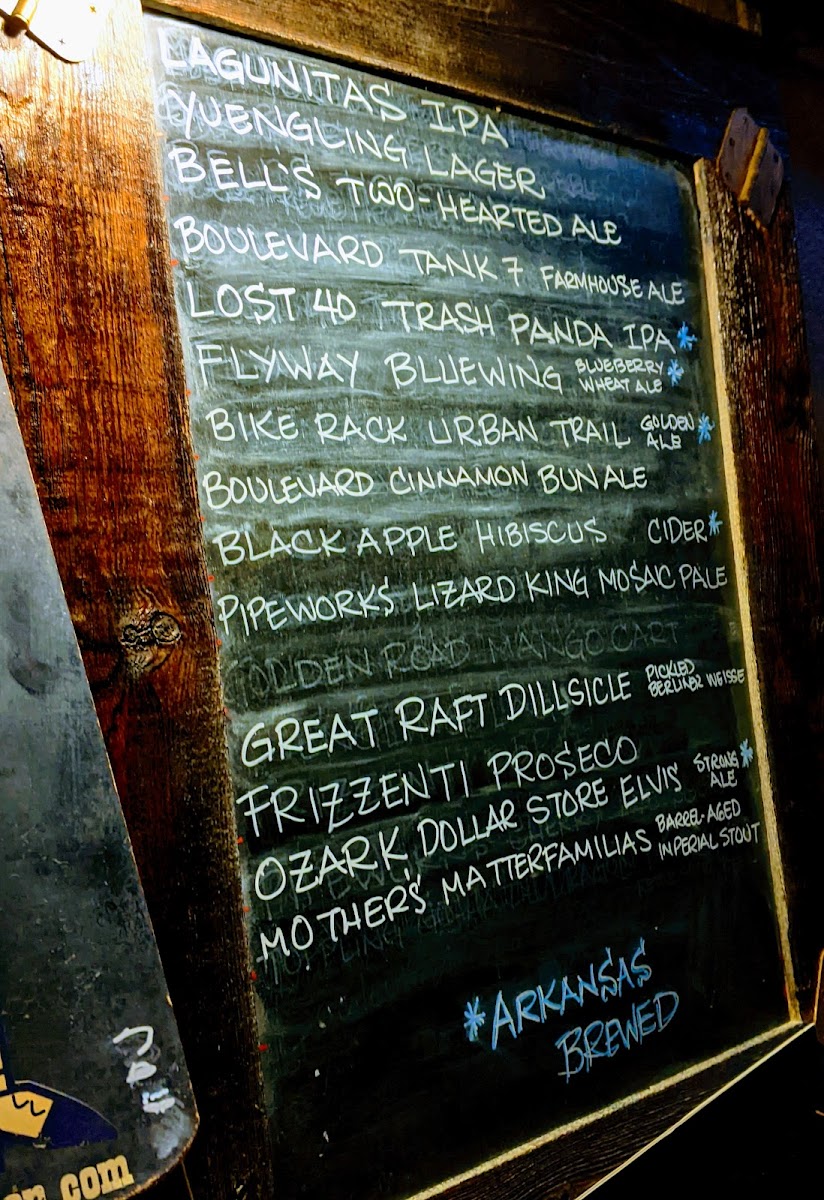 LAGUNITAS IPA
YUENGLING LAGER
BELL'S TWO-HEARTED ALE
BOULEVARD TANK 7 FARMHOUSE ALE
LOST 40 TRASH PANDA IPA*
FLYWAY BLUEWING BLUEBERRY WHEAT ALE*
BIKE RACK URBAN TRAIL GOLDEN ALE*
BOULEVARD CINNAMON BUN ALE
BLACK APPLE HIBISCUS CIDER*
PIPEWORKS LIZARD KING MOSAIC PALE
GOLDEN ROAD MANGO CART
GREAT RAFT DILLSICLE PICKLED BERLINER WEISSE
FRIZZENTI PROSECO
OZARK DOLLAR STORE ELVIS STRONG ALE*
MOTHER'S MATTERFAMILIAS BARREL-AGED IMPERIAL STOUT
*ARKANSAS
BREWED
.com